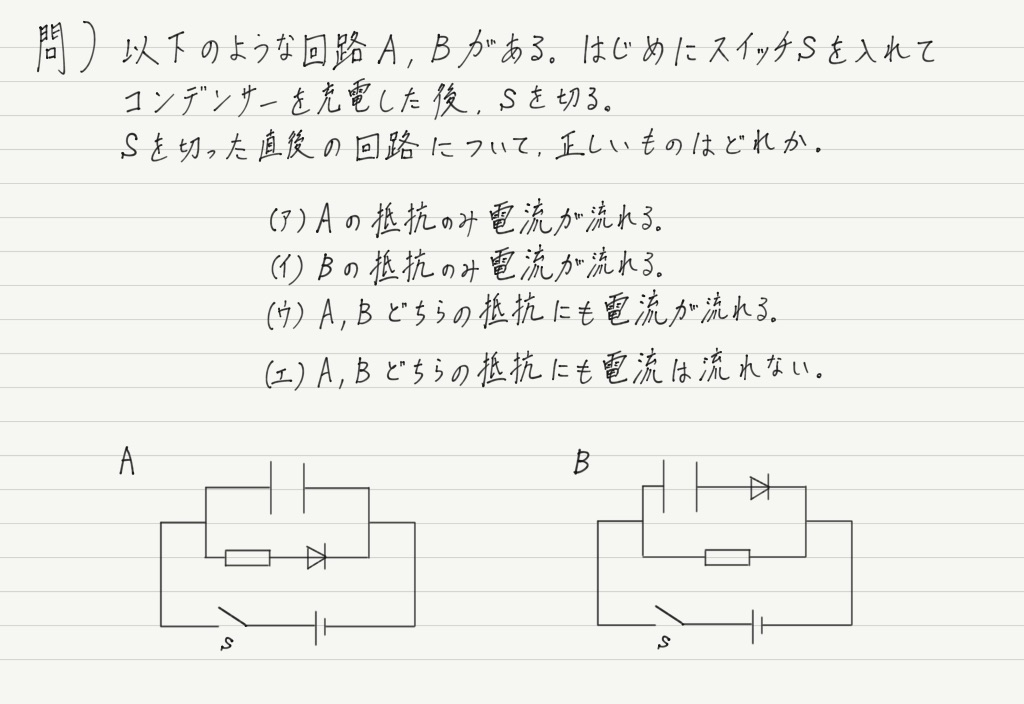 問) 以下のような回路A, Bがある。はじめにスイッチSを入れて
コンデンサーを充電した後, Sを切る。
Sを切った直後の回路について, 正しいものはどれか.
(ア) Aの抵抗のみ電流が流れる。
(イ) Bの抵抗のみ電流が流れる。
(ウ) A, Bどちらの抵抗にも電流が流れる。
(エ) A, Bどちらの抵抗にも電流は流れない。
A
B
S
S